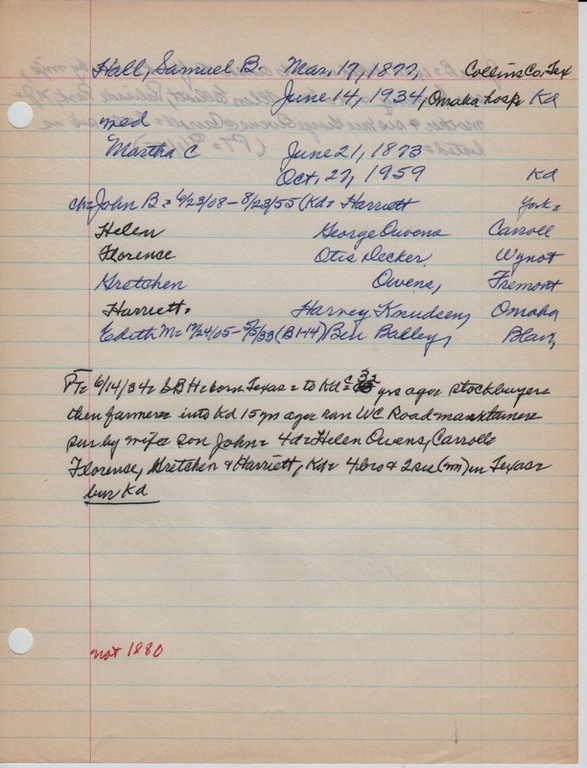 Hall, Samuel B. Mar. 17, 1877, Collins Co. Tex
June 14, 1934, Omaha hosp Kd
med
Martha C June 21, 1873
Oct. 27, 1959 Kd
ch= John B = 6/23/08 - 8/23/55 (Kd = Harriett York=
Helen George Owens Carroll
Florence Otis Decker Wynot
Gretchen Owens, Fremont
Harriett. Harvey Knudsen, Omaha
Edith M = 12/24/05 - 5/5/33 (B1-14) Ben Balley, Blair,
PT= 6/14/34 = SBH = born Texas = to Kd c 32 yrs ago = stockbuyer =
then farmer = into Kd 15 yrs ago = ran WC Road =
sur by wife = son John = 4d = Helen Owens, Carroll =
Florence, Gretchen & Harriett, Kd = 4 bro & 2 sis (nn) in Texas =
bur Kd
not 1880